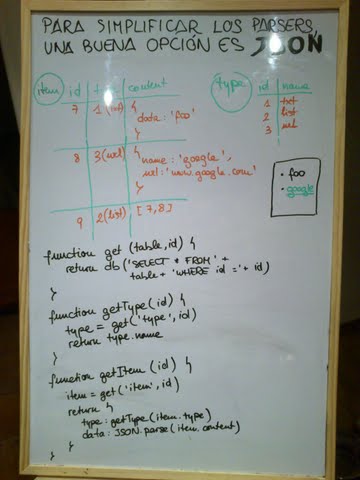 PARA SIMPLIFICAR LOS PARSERS,
UNA BUENA OPCIÓN ES JSON
item id type content
7 1(txt) {
data: 'foo'
}
8 3(url) {
name: 'google',
url: 'www.google.com'
}
9 2(list) [7,8]
type id name
1 txt
2 list
3 url
• foo
• google
function get (table, id) {
return db('SELECT * FROM' +
table + 'WHERE id =' + id)
}
function getType (id) {
type = get('type', id)
return type.name
}
function getItem (id) {
item = get('item', id)
return {
type: getType (item.type)
data: JSON.parse(item.content)
} }